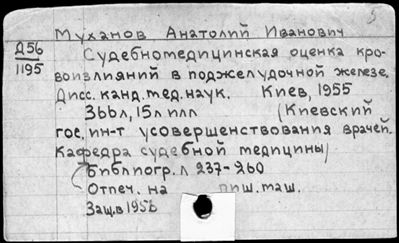 Муханов Анатолий Иванович
Д56
1195
Судебномедицинская оценка кро-
воизлияний в поджелудочной железе.
Дисс. канд. мед. наук. Киев, 1955
366л, 15л илл (Киевский
гос. ин-т усовершенствования врачей.
Кафедра судебной медицины)
Библиогр. л 237-260
Отпеч. на пиш. маш.
Защ. в 1956